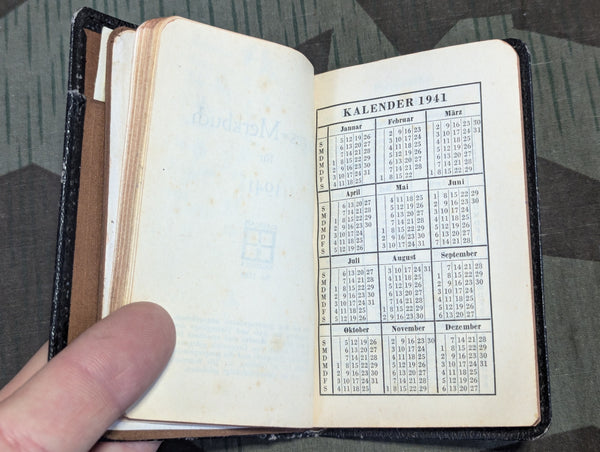 KALENDER 1941
Januar Februar März
S 5 12 19 26 2 9 16 23 2 9 16 23 30
M 6 13 20 27 3 10 17 24 3 10 17 24 31
D 7 14 21 28 4 11 18 25 4 11 18 25
M 1 8 15 22 29 5 12 19 26 5 12 19 26
D 2 9 16 23 30 6 13 20 27 6 13 20 27
F 3 10 17 24 31 7 14 21 28 7 14 21 28
S 4 11 18 25 1 8 15 22 1 8 15 22 29
April Mai Juni
S 6 13 20 27 4 11 18 25 1 8 15 22 29
M 7 14 21 28 5 12 19 26 2 9 16 23 30
D 1 8 15 22 29 6 13 20 27 3 10 17 24
M 2 9 16 23 30 7 14 21 28 4 11 18 25
D 3 10 17 24 1 8 15 22 29 5 12 19 26
F 4 11 18 25 2 9 16 23 30 6 13 20 27
S 5 12 19 26 3 10 17 24 31 7 14 21 28
Juli August September
S 6 13 20 27 3 10 17 24 31 7 14 21 28
M 7 14 21 28 4 11 18 25 1 8 15 22 29
D 1 8 15 22 29 5 12 19 26 2 9 16 23 30
M 2 9 16 23 30 6 13 20 27 3 10 17 24
D 3 10 17 24 31 7 14 21 28 4 11 18 25
F 4 11 18 25 1 8 15 22 29 5 12 19 26
S 5 12 19 26 2 9 16 23 30 6 13 20 27
Oktober November Dezember
S 5 12 19 26 2 9 16 23 30 7 14 21 28
M 6 13 20 27 3 10 17 24 1 8 15 22 29
D 7 14 21 28 4 11 18 25 2 9 16 23 30
M 1 8 15 22 29 5 12 19 26 3 10 17 24 31
D 2 9 16 23 30 6 13 20 27 4 11 18 25
F 3 10 17 24 31 7 14 21 28 5 12 19 26
S 4 11 18 25 1 8 15 22 29 6 13 20 27